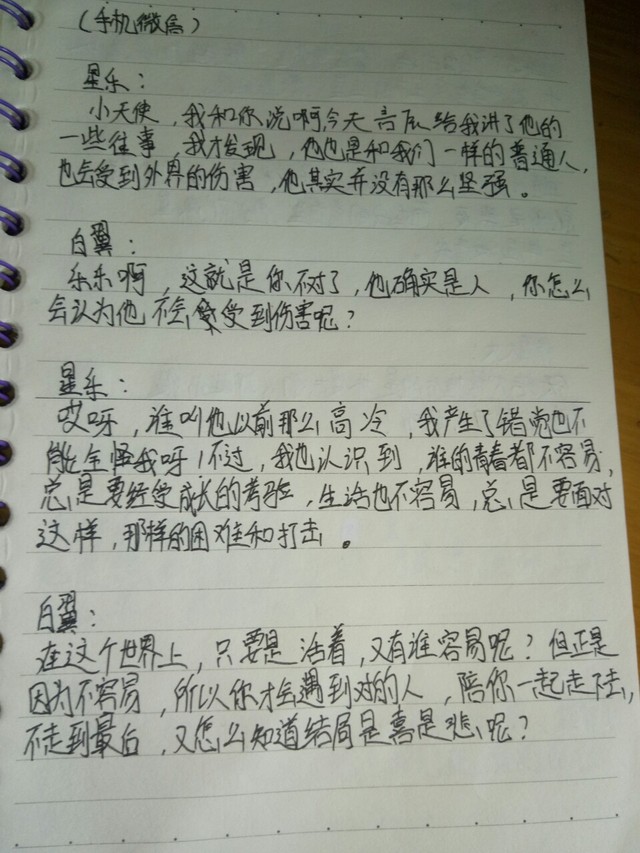 (手机微信)
星乐:
小天使,我和你说啊,今天 给我讲了他的
一些往事,我才发现,他也是和我们一样的普通人,
也会受到外界的伤害,他其实并没有那么坚强。
白翼:
乐乐啊,这就是你不对了,他确实是人,你怎么
会认为他不会受到伤害呢?
星乐:
哎呀,谁叫他以前那么高冷,我产生了错觉也不
能全怪我呀!不过,我也认识到,谁的青春都不容易,
总是要经受成长的考验,生活也不容易,总是要面对
这样,那样的困难和打击。
白翼:
在这个世界上,只要是活着,又有谁容易呢?但正是
因为不容易,所以你才会遇到对的人,陪你一起走下去,
不走到最后,又怎么知道结局是喜是悲呢?